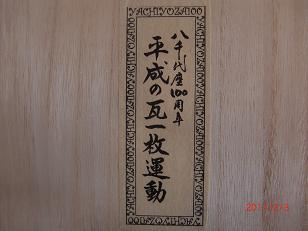 YACHIYOZA100
八千代座100周年
平成の瓦一枚運動